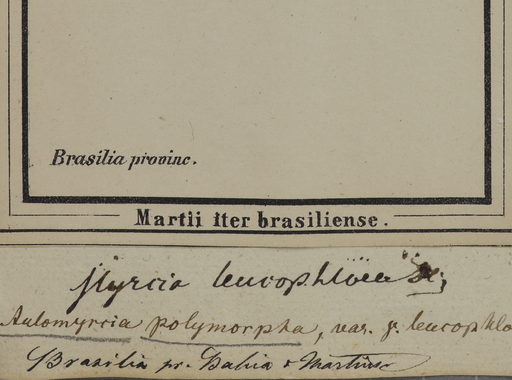 Brasilia provinc.
Martii iter brasiliense.
Myrcia leucophloea
Aulomyrcia polymorpha, var. γ. leucophlo
Brasilia pr. Bahia Martius